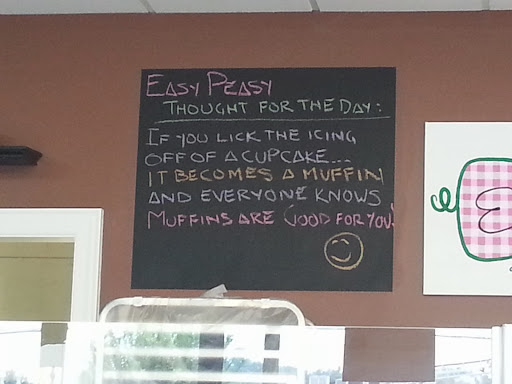 EASY PEASY
THOUGHT FOR THE DAY:
IF YOU LICK THE ICING
OFF OF A CUPCAKE....
IT BECOMES A MUFFIN
AND EVERYONE KNOWS
MUFFINS ARE GOOD FOR YOU!